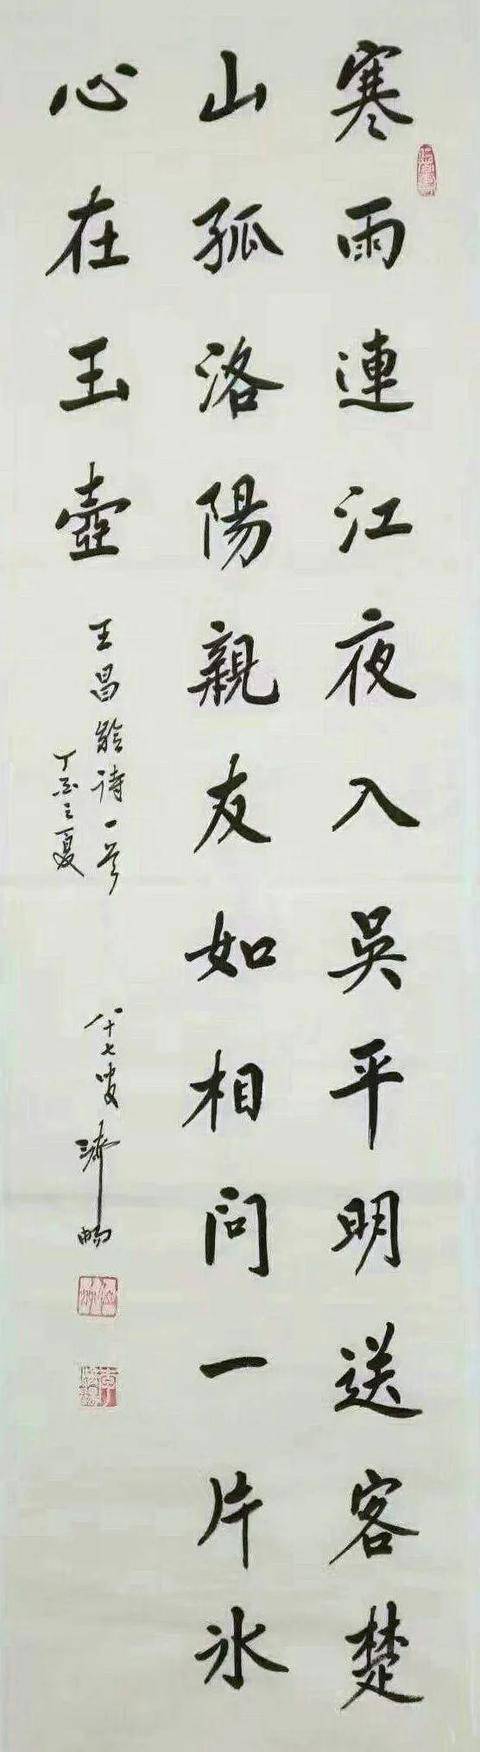 寒雨連江夜入吳平明送客楚
山孤洛陽親友如相問一片冰
心在玉壺
王昌齡诗一首
丁酉之夏
八十七叟